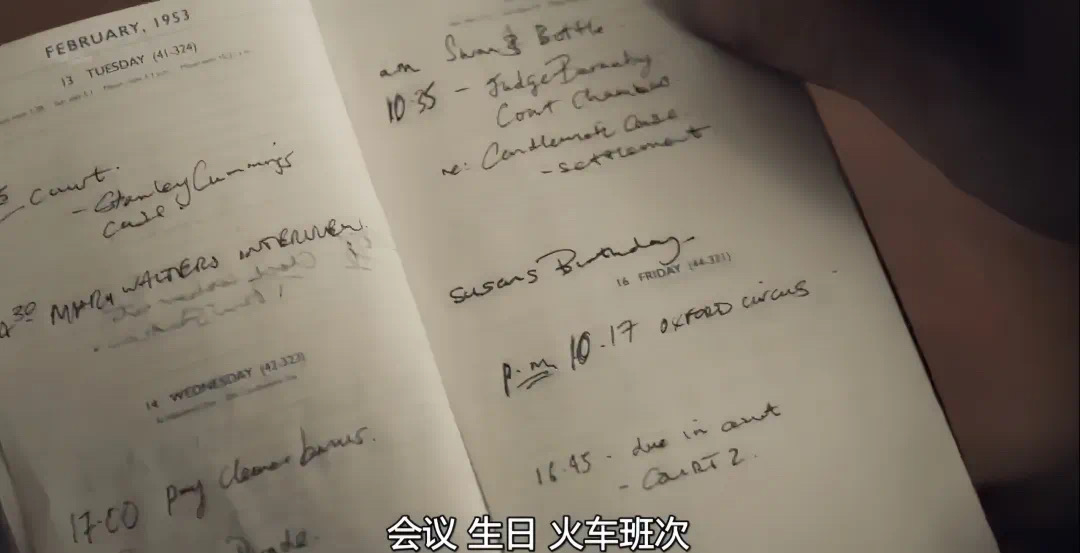 FEBRUARY, 1953
13 TUESDAY (41-324)
court.
- Stanley Cummings
case.
30 MARY WALTERS INTERVIEW
14 WEDNESDAY (42-323)
17.00 pay cleaner
am Swan & Bottle
10.35 - Judge Barnaby
Court Chambers
re: case
- settlement
Susans Birthday
16 FRIDAY (44-321)
p.m 10.17 OXFORD CIRCUS
16.45 - due in court
- COURT 2.
会议 生日 火车班次